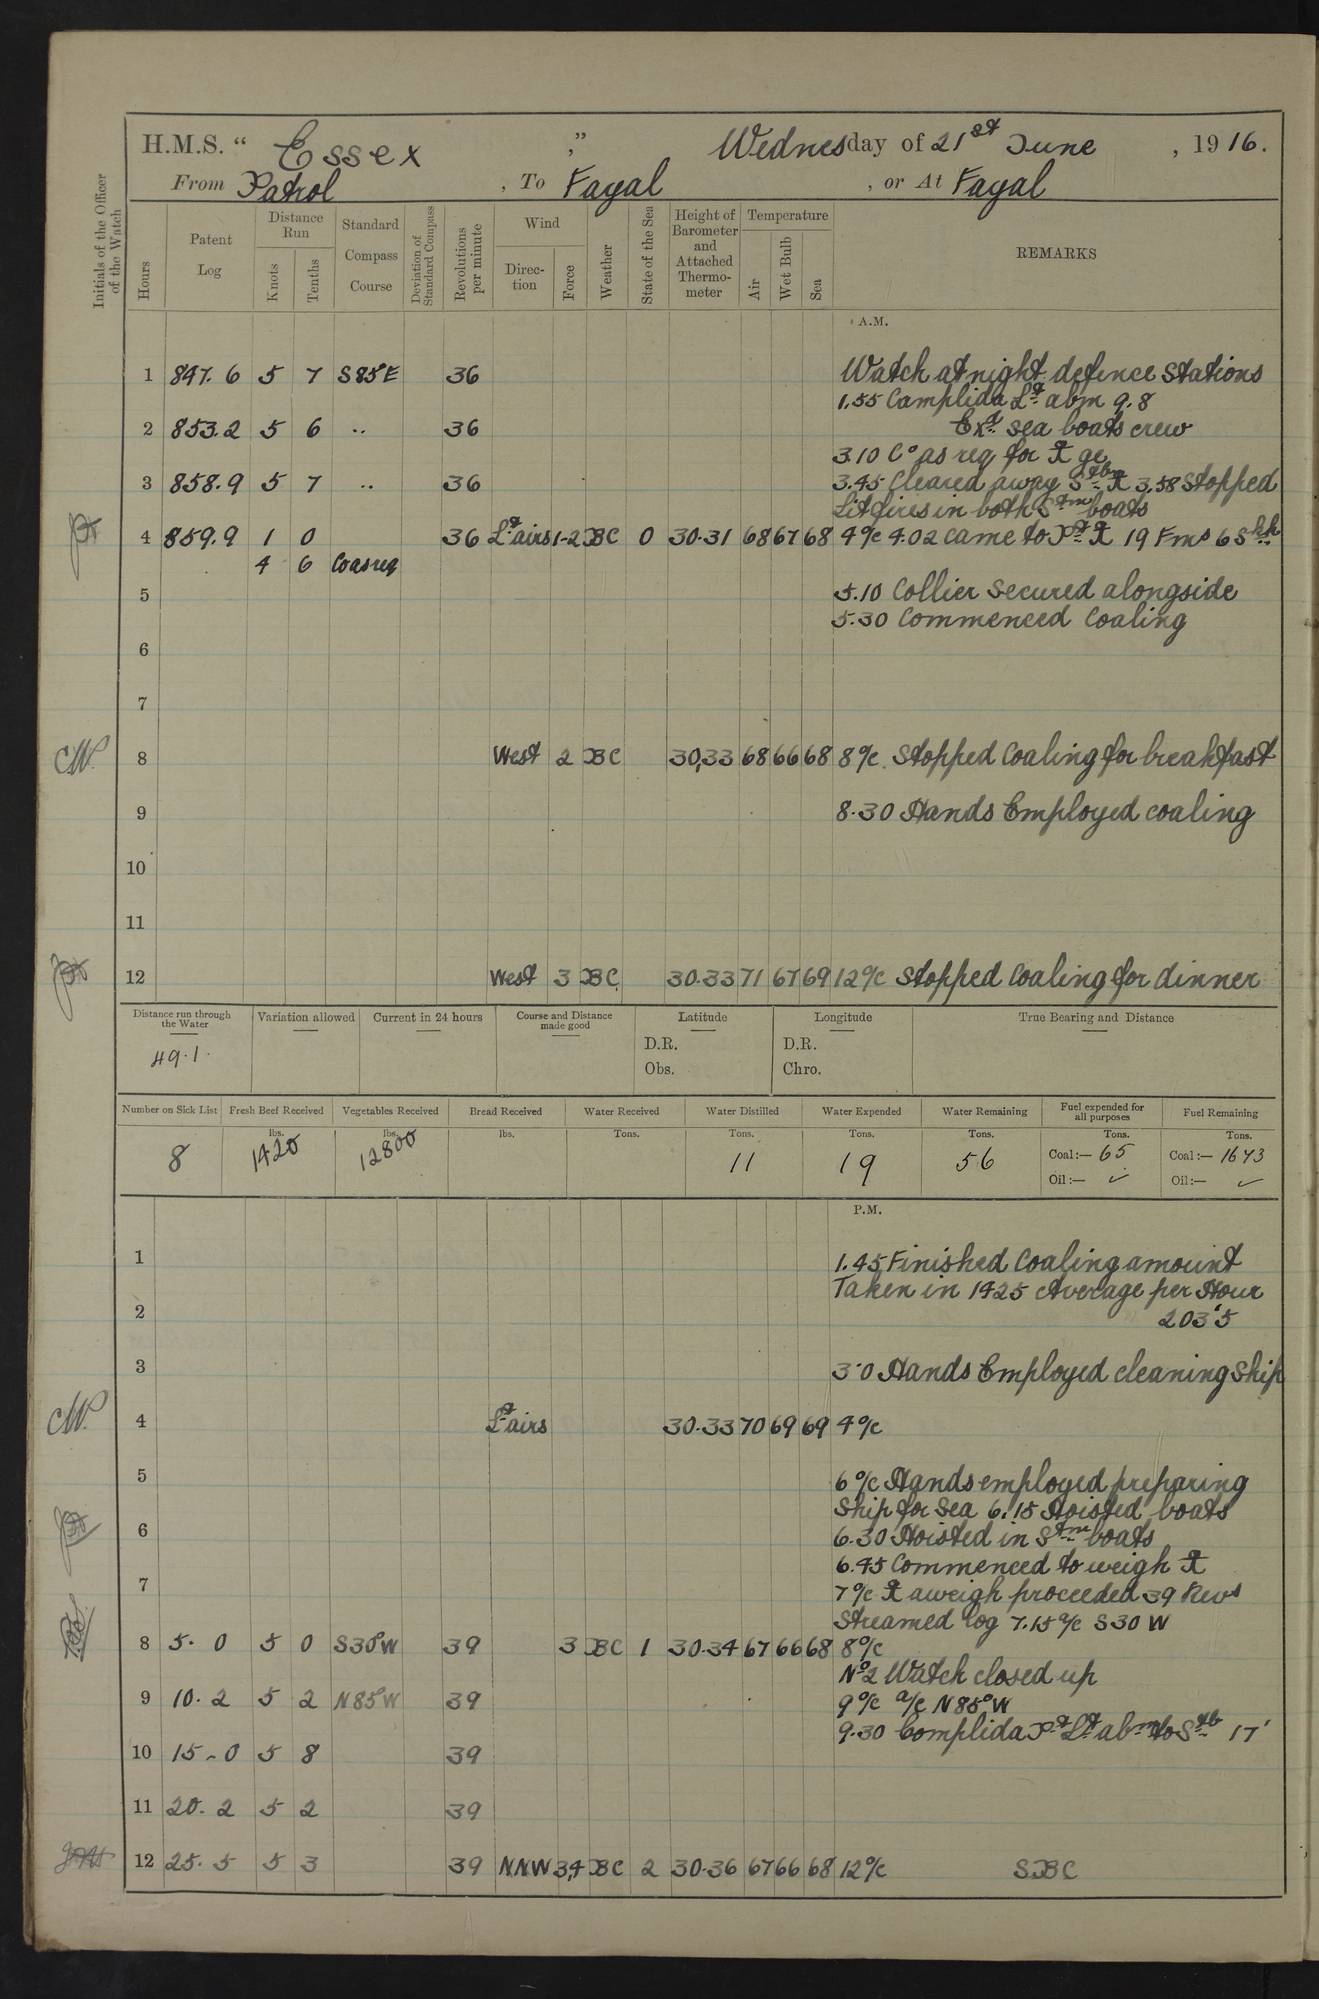 H.M.S. “ Essex ,” Wednesday of 21st June , 1916.
From Patrol , To Fayal , or At Fayal
Initials of the Officer of the Watch
Hours
Patent Log
Distance Run
Knots
Tenths
Standard Compass Course
Deviation of Standard Compass
Revolutions per minute
Wind
Direction
Force
Weather
State of the Sea
Height of Barometer and Attached Thermometer
Temperature
Air
Wet Bulb
Sea
REMARKS
A.M.
1 847.6 5 7 S85°E 36 Watch at night defence stations
1.55 Camplida Lt abm 9.8
2 853.2 5 6 .. 36 Exd sea boats crew
3.10 Co as req for ⚓ ge
3 858.9 5 7 .. 36 3.45 Cleared away Stbd ⚓ 3.58 Stopped
Lit fires in both Stm boats
4 859.9 1 0 36 Lt airs 1-2 BC 0 30.31 68 67 68 4 o/c 4.02 came to Pt ⚓ 19 Fms 6 Shk
4 6 Co as req
5 5.10 Collier secured alongside
5.30 Commenced Coaling
6
7
8 West 2 BC 30,33 68 66 68 8 o/c. Stopped Coaling for breakfast
9 8.30 Hands Employed coaling
10
11
12 West 3 BC 30.33 71 67 69 12 o/c Stopped Coaling for dinner
Distance run through the Water
Variation allowed
Current in 24 hours
Course and Distance made good
Latitude
Longitude
True Bearing and Distance
49.1
D.R.
Obs.
D.R.
Chro.
Number on Sick List
Fresh Beef Received
Vegetables Received
Bread Received
Water Received
Water Distilled
Water Expended
Water Remaining
Fuel expended for all purposes
Fuel Remaining
lbs. lbs. lbs. Tons. Tons. Tons. Tons. Tons. Tons.
8 1420 12800 11 19 56 Coal:— 65 Coal:— 1643
Oil:— ✓ Oil:— ✓
P.M.
1 1.45 Finished Coaling amount
Taken in 1425 Average per Hour
2 203.5
3 3.0 Hands Employed cleaning Ship
4 Lt airs 30.33 70 69 69 4 o/c
5 6 o/c Hands employed preparing
Ship for Sea 6.15 Hoisted boats
6 6.30 Hoisted in Stm boats
6.45 Commenced to weigh ⚓
7 7 o/c ⚓ aweigh proceeded 39 Revs
Streamed log 7.15 a/c S30 W
8 5.0 5 0 S30°W 39 3 BC 1 30.34 67 66 68 8 o/c
No 2 Watch closed up
9 10.2 5 2 N85°W 39 9 o/c a/c N85°W
9.30 Complida Pt Lt abm to Stb 17'
10 15-0 5 8 39
11 20.2 5 2 39
12 25.5 5 3 39 N.N.W 3,4 BC 2 30.36 67 66 68 12 o/c SBC